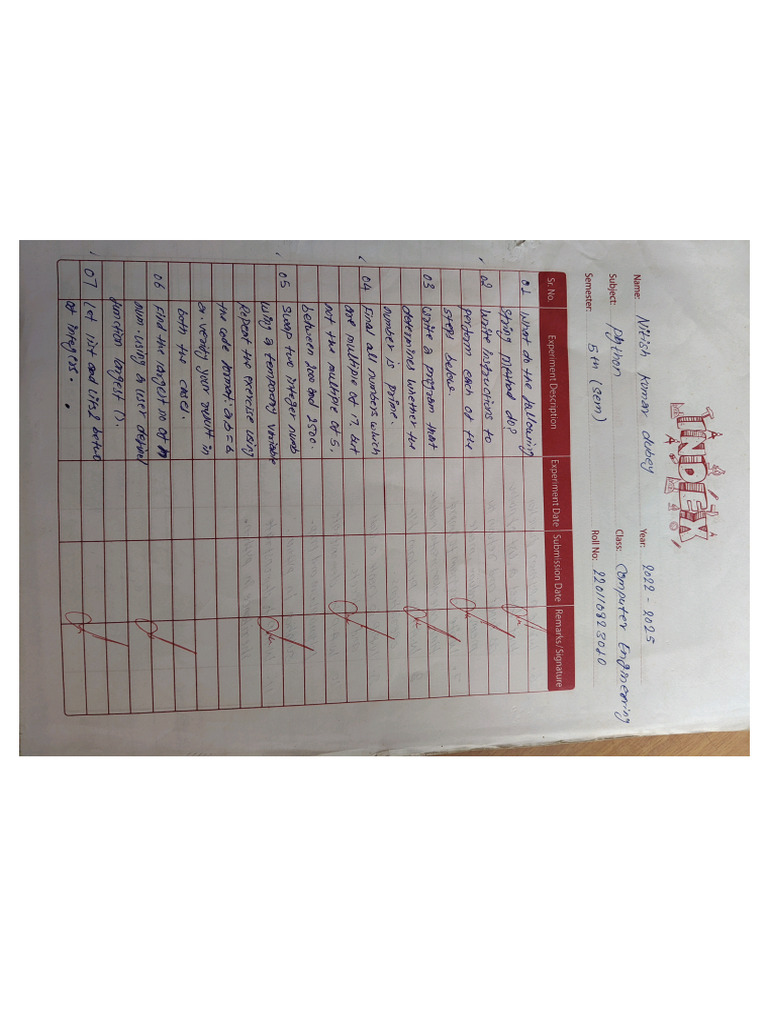 INDEX
Name: Nitish Kumar dubey Year: 2022 - 2025
Subject: Python Class: Computer Engineering
Semester: 5th (sem) Roll No: 220110823020
Sr. No. Experiment Description Experiment Date Submission Date Remarks/Signature
01 What do the following
string Method do?
02 Write instructions to
perform each of the
steps below
03 Write a program that
determines whether the
number is prime.
04 Find all numbers which
are multiple of 17, but
not the multiple of 5,
between 2000 and 2500.
05 Swap two integer numb
using a temporary variable
Repeat the exercise using
the code format: a,b = b
a. verify your result in
both the cases.
06 Find the largest no of n
num. using a user defined
function largest ().
07 Let list and lits2 be two
of integers.